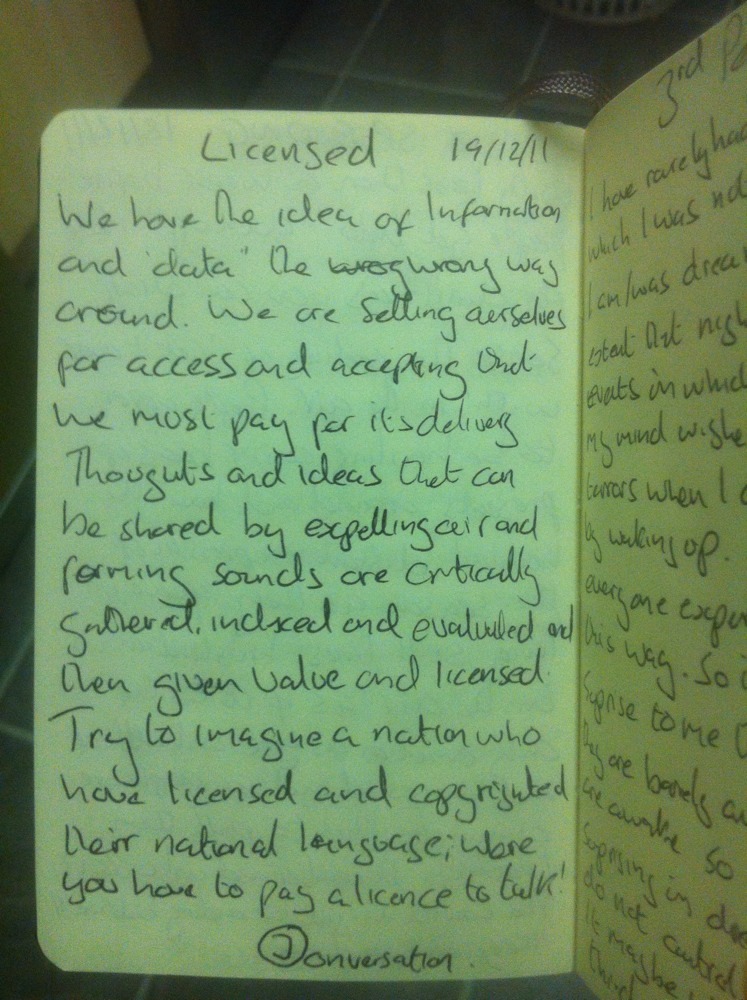 Licensed 19/12/11
We have the idea of Information
and "data" the wrong wrong way
around. We are selling ourselves
for access and accepting that
we most pay for its delivery
Thoughts and ideas that can
be shared by expelling air and
forming sounds are critically
gathered, indexed and evaluated and
then given value and licensed.
Try to imagine a nation who
have licensed and copyrighted
their national language; where
you have to pay a licence to talk!
Conversation.
3rd
I have rarely
which I was
I am/was
extent that
events in which
my mind
terrors when I
by waking up.
everyone
this way. So
Suprise to me
they are barely
are awake so
Suprising in
do not
it maybe